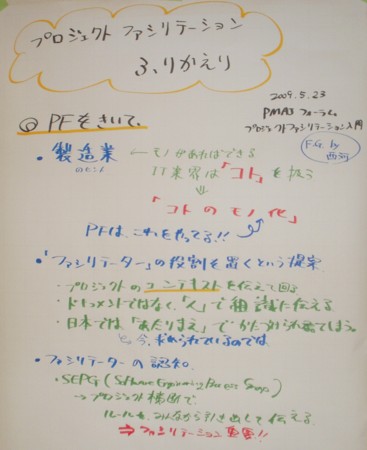 プロジェクト ファシリテーション
ふりかえり
2009.5.23
PMAJ フォーラム
プロジェクトファシリテーション入門
F.G. by
西河
◎ PFをきいて、
・製造業 ← モノがあればできる
のヒント IT業界は「コト」を扱う
⇓
「コトのモノ化」
PFは、これをやってる!!
・「ファシリテーター」の役割を置くという提案
・プロジェクトのコンテキストを伝えて回る
・ドキュメントではなく、「人」で組織に伝える
・日本では「あたりまえ」で
と、今、求められているのでは
・ファシリテーターの認知。
・SEPG (Software Engineering Process Group)
→プロジェクト横断で
ルールを、みんなから引き出して伝える
⇒ファシリテーション重要!!